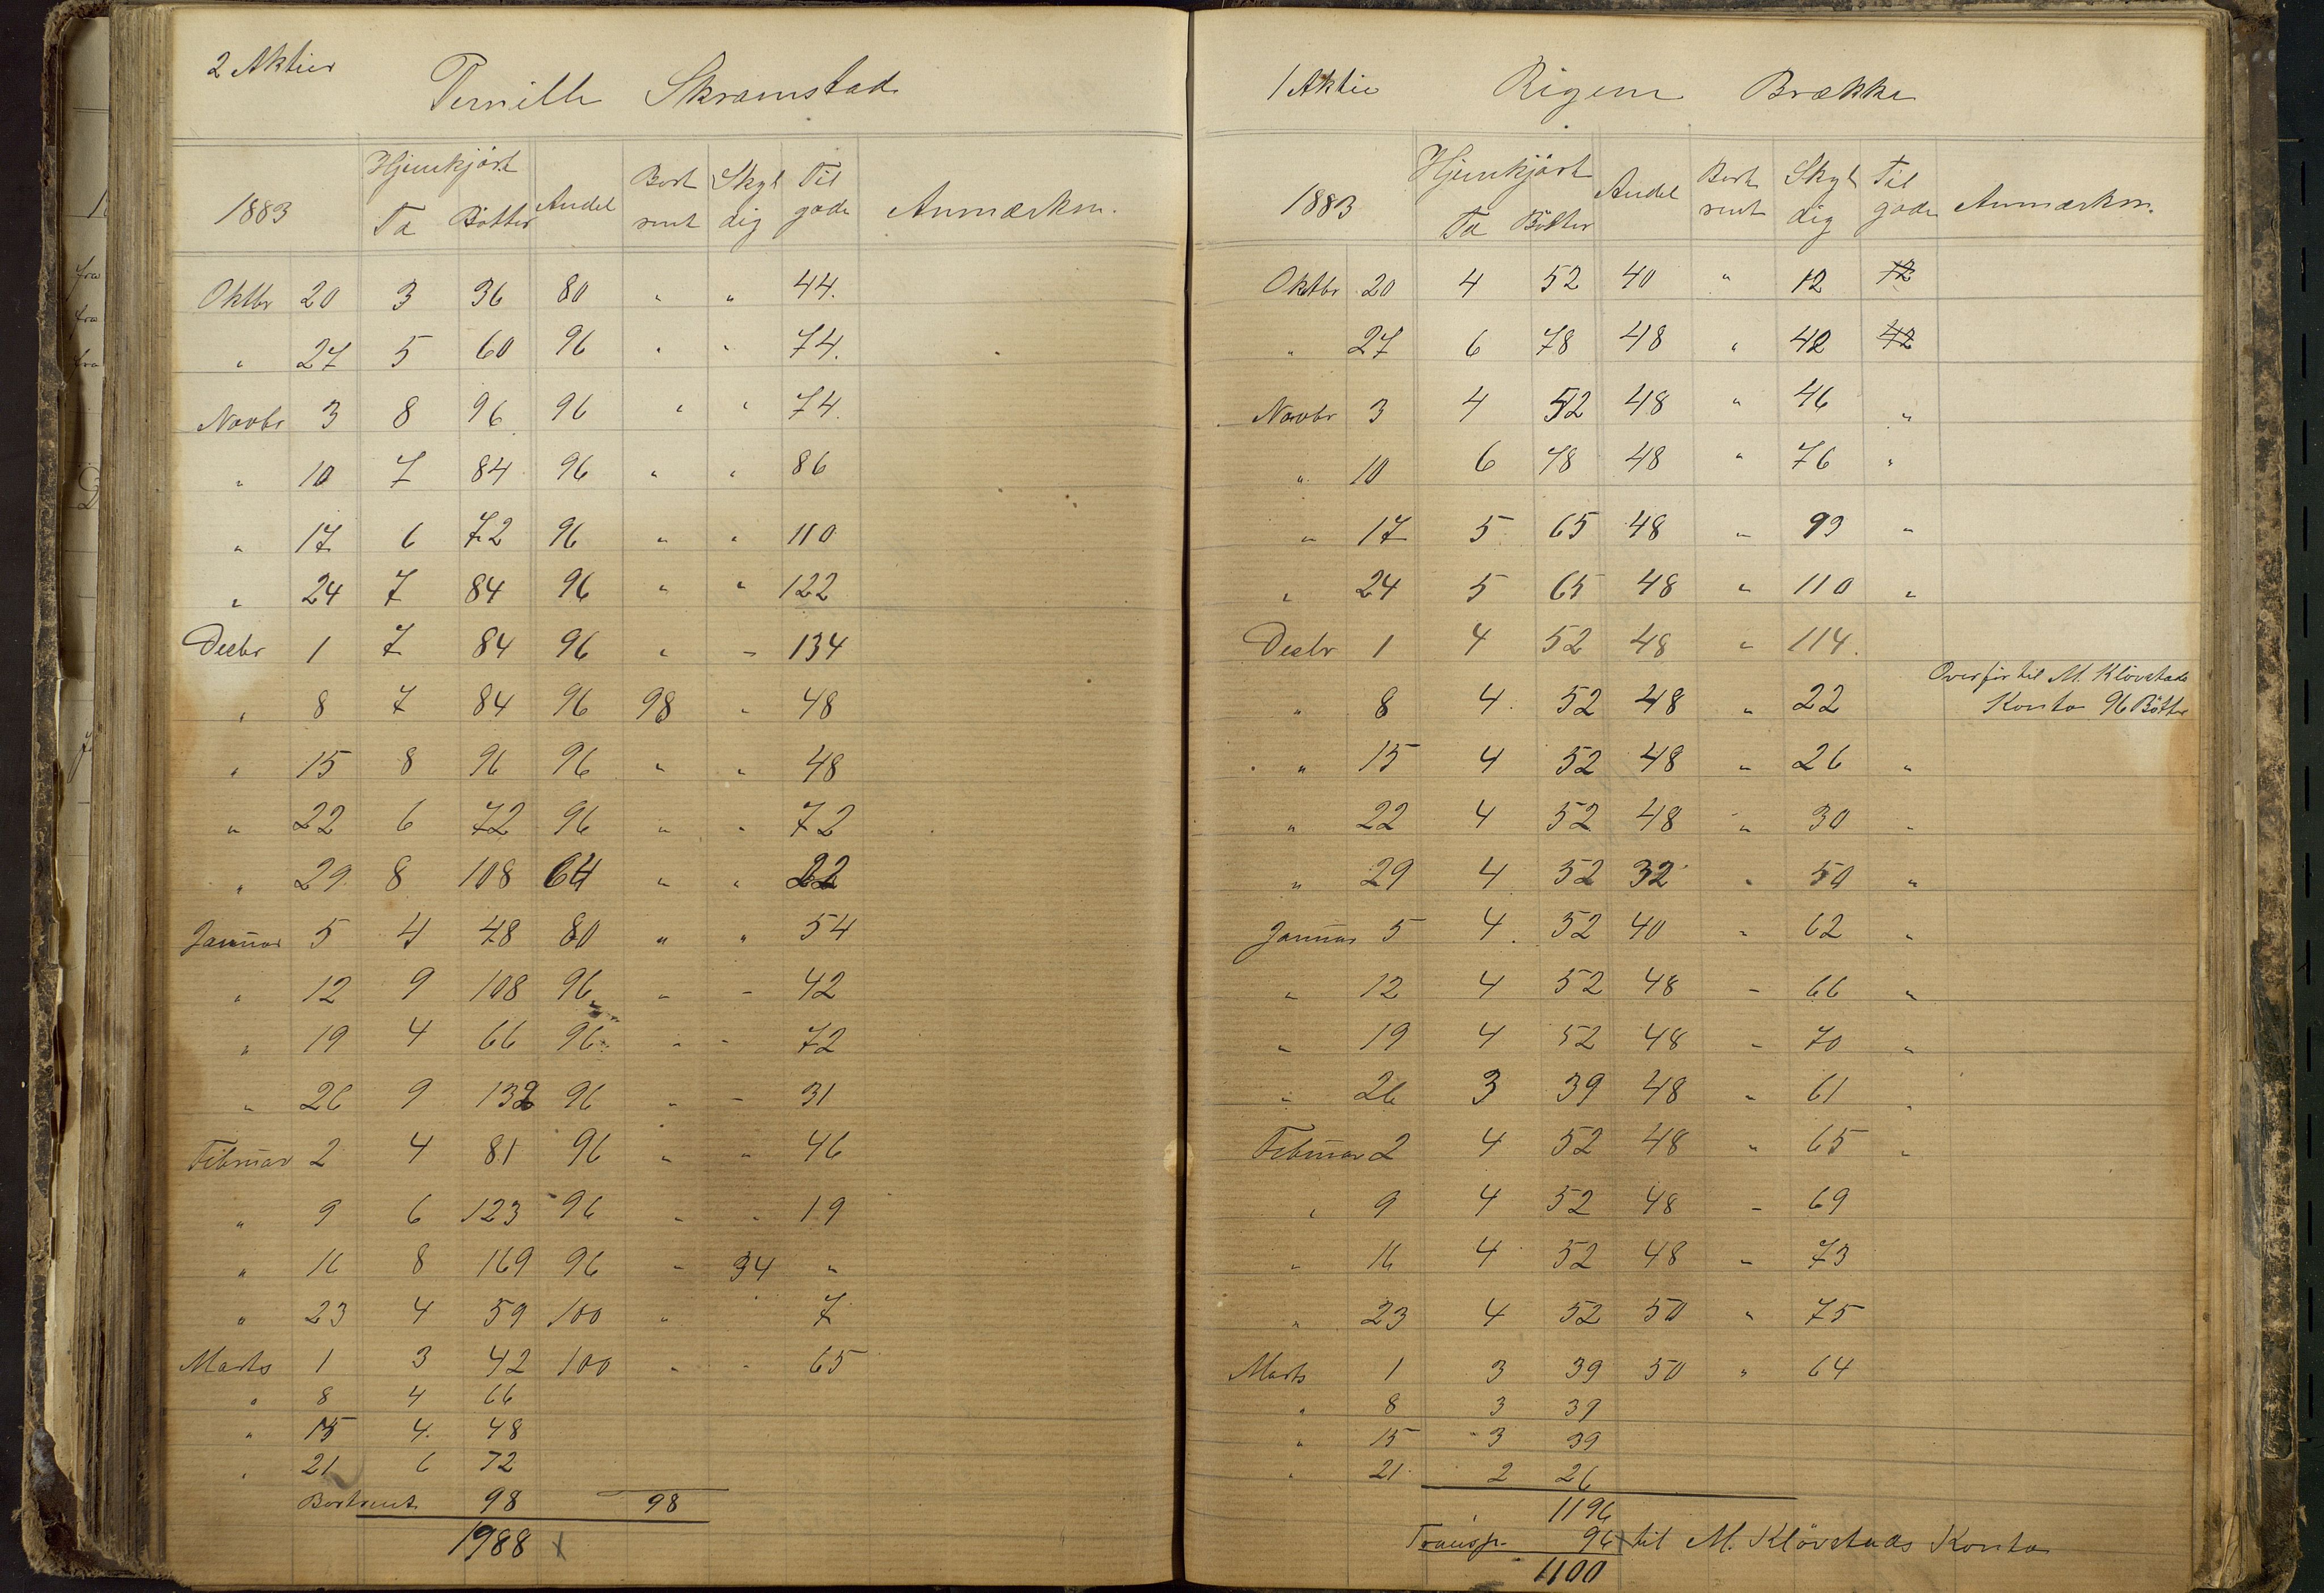 2 Aktier
Pernille Skramstad
1883 Hjemkjört Ta Bötter Andel Bort rent Skyl dig Til gode Anmærkn.
Oktbr 20 3 36 80 " " 44.
" 27 5 60 96 " " 74.
Novbr 3 8 96 96 " " 74.
" 10 7 84 96 " " 86
" 17 6 72 96 " " 110
" 24 7 84 96 " " 122
Decbr 1 7 84 96 " " 134
" 8 7 84 96 98 " 48
" 15 8 96 96 " " 48
" 22 6 72 96 " " 72
" 29 8 108 64 " " 22
Januar 5 4 48 80 " " 54
" 12 9 108 96 " " 42
" 19 4 66 96 " " 72
" 26 9 132 96 " " 31
Februar 2 4 81 96 " " 46
" 9 6 123 96 " " 19
" 16 8 169 96 " 34 "
" 23 4 59 100 " 7
Marts 1 3 42 100 " " 65
" 8 4 66
" 15 4 48
" 21 6 72
Bortrent 98 98
1988 x
1 Aktie
Brække
1883 Hjemkjört Ta Bötter Andel Bort rent Skyl dig Til gode Anmærkn.
Oktbr 20 4 52 40 " 12 12
" 27 6 78 48 " 42 42
Novbr 3 4 52 48 " 46 "
" 10 6 78 48 " 76 "
" 17 5 65 48 " 93 "
" 24 5 65 48 " 110 "
Decbr 1 4 52 48 " 114.
" 8 4 52 48 " 22 Overför til M. Klövstads Konto 96 Bötter
" 15 4 52 48 " 26 "
" 22 4 52 48 " 30 "
" 29 4 52 32 " 50 "
Januar 5 4 52 40 " 62 "
" 12 4 52 48 " 66 "
" 19 4 52 48 " 70 "
" 26 3 39 48 " 61 "
Februar 2 4 52 48 " 65 "
" 9 4 52 48 " 69
" 16 4 52 48 " 73
" 23 4 52 50 " 75
Marts 1 3 39 50 " 64
" 8 3 39
" 15 3 39
" 21 2 26
1196
Transp. 96 til M. Klövstads Konto
1100